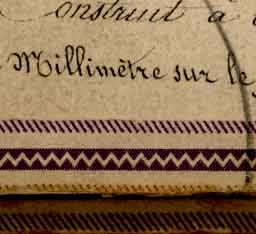 onstruit à
Millimètre sur le